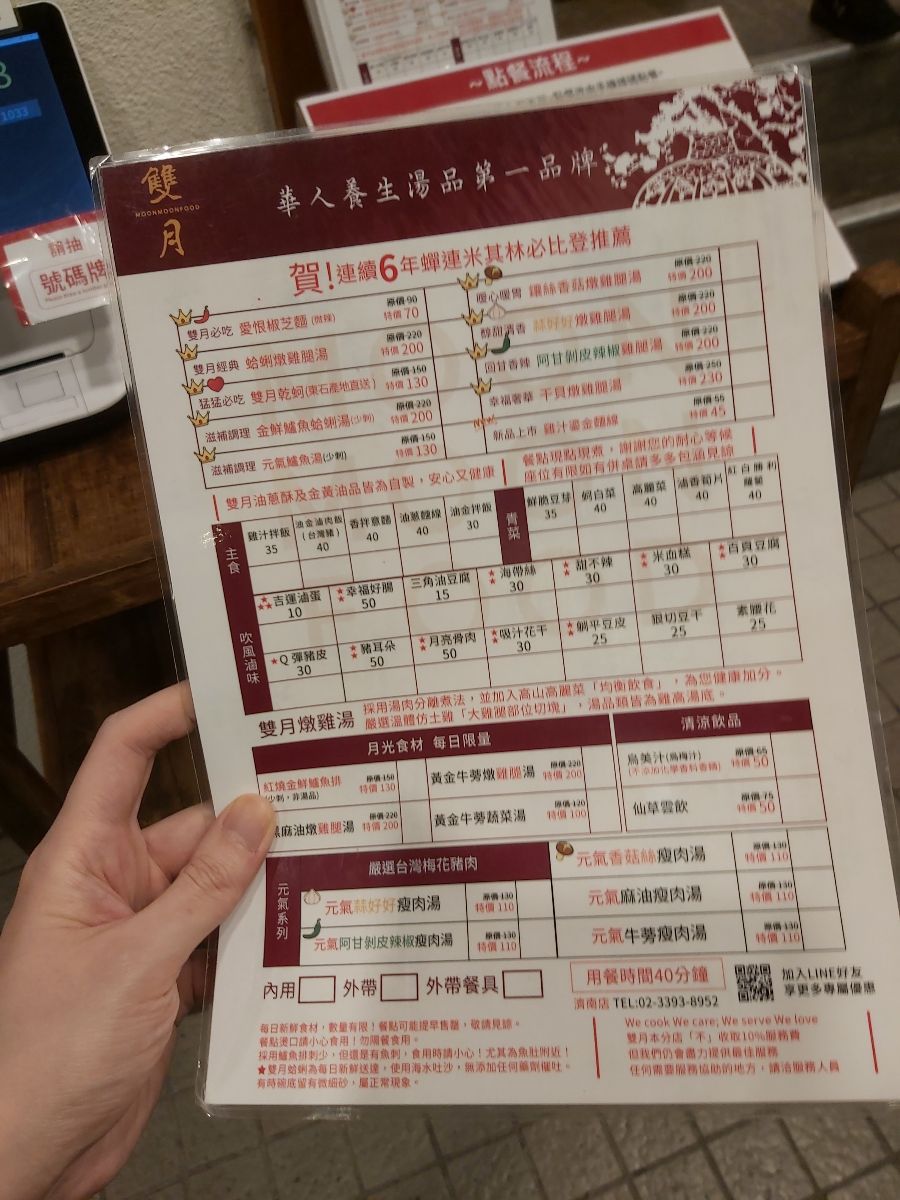 1033
~點餐流程~
請抽
號碼牌
雙月
MOONMOONFOOD
華人養生湯品第一品牌
賀!連續6年蟬連米其林必比登推薦
雙月必吃 愛恨椒芝麵(微辣) 原價90 特價70
雙月經典 蛤蜊燉雞腿湯 原價220 特價200
猛猛必吃 雙月乾蚵(東石產地直送) 原價150 特價130
滋補調理 金鮮鱸魚蛤蜊湯(少刺) 原價220 特價200
滋補調理 元氣鱸魚湯(少刺) 原價150 特價130
暖心暖胃 鑲絲香菇燉雞腿湯 原價220 特價200
醇甜清香 蒜好好燉雞腿湯 原價220 特價200
回甘香辣 阿甘剝皮辣椒雞腿湯 原價220 特價200
幸福奢華 干貝燉雞腿湯 原價250 特價230
新品上市 雞汁鎏金麵線 原價55 特價45
雙月油蔥酥及金黃油品皆為自製,安心又健康
餐點現點現煮,謝謝您的耐心等候
座位有限如有併桌請多多包涵見諒
主食
雞汁拌飯 35
油金滷肉飯(台灣豬) 40
香拌意麵 40
油蔥麵線 40
油金拌飯 30
青菜
鮮脆豆芽 35
蚵白菜 40
高麗菜 40
滷香筍片 40
紅白勝利蘿蔔 40
吹風滷味
★★★吉運滷蛋 10
★★幸福好腸 50
三角油豆腐 15
★★海帶絲 30
★★甜不辣 30
★米血糕 30
★★百頁豆腐 30
★Q彈豬皮 30
★★豬耳朵 50
★★月亮骨肉 50
★★吸汁花干 30
★★躺平豆皮 25
狠切豆干 25
素腰花 25
雙月燉雞湯
採用湯肉分離煮法,並加入高山高麗菜「均衡飲食」,為您健康加分。
嚴選溫體仿土雞「大雞腿部位切塊」,湯品類皆為雞高湯底。
月光食材 每日限量
紅燒金鮮鱸魚排
(少刺,非湯品) 原價150 特價130
麻油燉雞腿湯 原價220 特價200
黃金牛蒡燉雞腿湯 原價220 特價200
黃金牛蒡蔬菜湯 原價120 特價100
清涼飲品
烏美汁(烏梅汁)
(不添加化學香料香精) 原價65 特價50
仙草雲飲 原價75 特價50
元氣系列
嚴選台灣梅花豬肉
元氣蒜好好瘦肉湯 原價130 特價110
元氣阿甘剝皮辣椒瘦肉湯 原價130 特價110
元氣香菇絲瘦肉湯 原價130 特價110
元氣麻油瘦肉湯 原價130 特價110
元氣牛蒡瘦肉湯 原價130 特價110
內用 外帶 外帶餐具
用餐時間40分鐘
濟南店 TEL:02-3393-8952
加入LINE好友
享更多專屬優惠
每日新鮮食材,數量有限!餐點可能提早售罄,敬請見諒。
餐點燙口請小心食用!勿隔餐食用。
採用鱸魚排刺少,但還是有魚刺,食用時請小心!尤其為魚肚附近!
★雙月蛤蜊為每日新鮮送達,使用海水吐沙,無添加任何藥劑催吐。
有時碗底留有微細砂,屬正常現象。
We cook We care; We serve We love
雙月本分店「不」收取10%服務費
但我們仍會盡力提供最佳服務
任何需要服務協助的地方,請洽服務人員